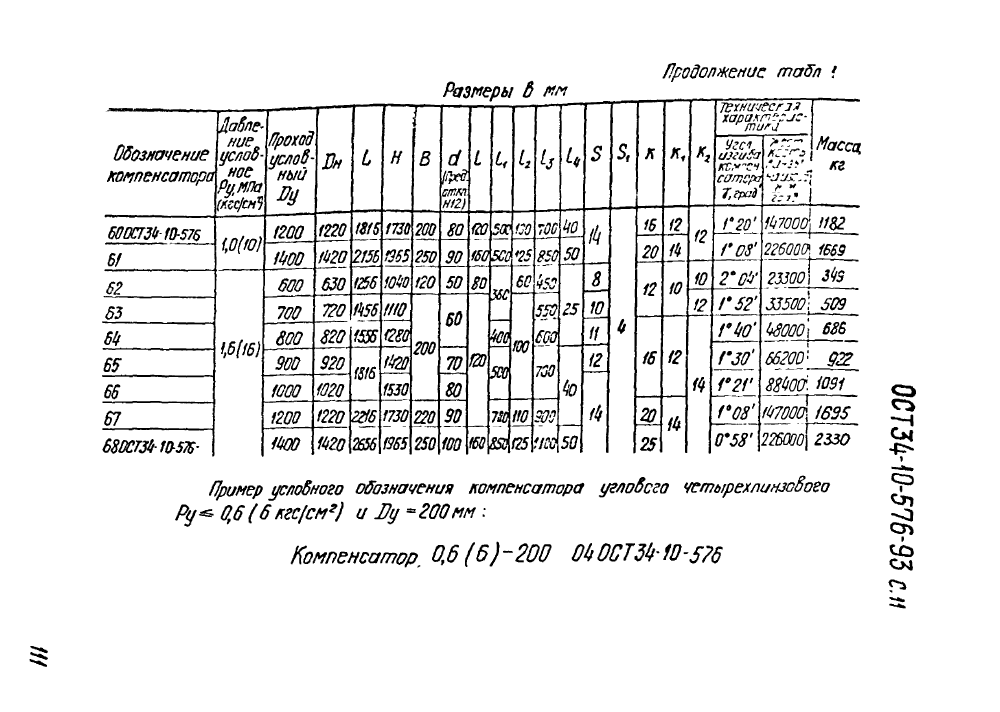 Продолжение табл 1
Размеры в мм
Обозначение компенсатора
Давление условное Ру, МПа (кгс/см²)
Проход условный Ду
Dн
L
H
B
d (пред. откл. H12)
l
l₁
l₂
l₃
l₄
S
S₁
K
K₁
K₂
Техническая характеристика
Угол изгиба компенсатора γ, град
Масса, кг
60 ОСТ34-10-576 1,0(10) 1200 1220 1816 1730 200 80 120 500 700 40 14 4 16 12 12 1°20' 147000 1182
61 1400 1420 2156 1965 250 90 160 500 125 850 50 20 14 1°08' 226000 1669
62 1,6(16) 600 630 1256 1040 120 50 80 360 60 450 25 8 12 10 10 2°04' 23300 349
63 700 720 1456 1110 200 60 120 100 550 10 12 1°52' 33500 509
64 800 820 1556 1280 400 600 11 16 12 14 1°40' 48000 686
65 900 920 1816 1420 70 500 700 40 12 1°30' 66200 922
66 1000 1020 1530 80 14 1°21' 88400 1091
67 1200 1220 2216 1730 220 90 700 110 900 20 14 1°08' 147000 1695
68 ОСТ34-10-576- 1400 1420 2656 1965 250 100 160 850 125 1100 50 25 0°58' 226000 2330
Пример условного обозначения компенсатора углового четырехлинзового
Ру ≤ 0,6 (6 кгс/см²) и Ду = 200 мм :
Компенсатор 0,6 (6)-200 04 ОСТ34-10-576
ОСТ34-10-576-93 с. 11
111